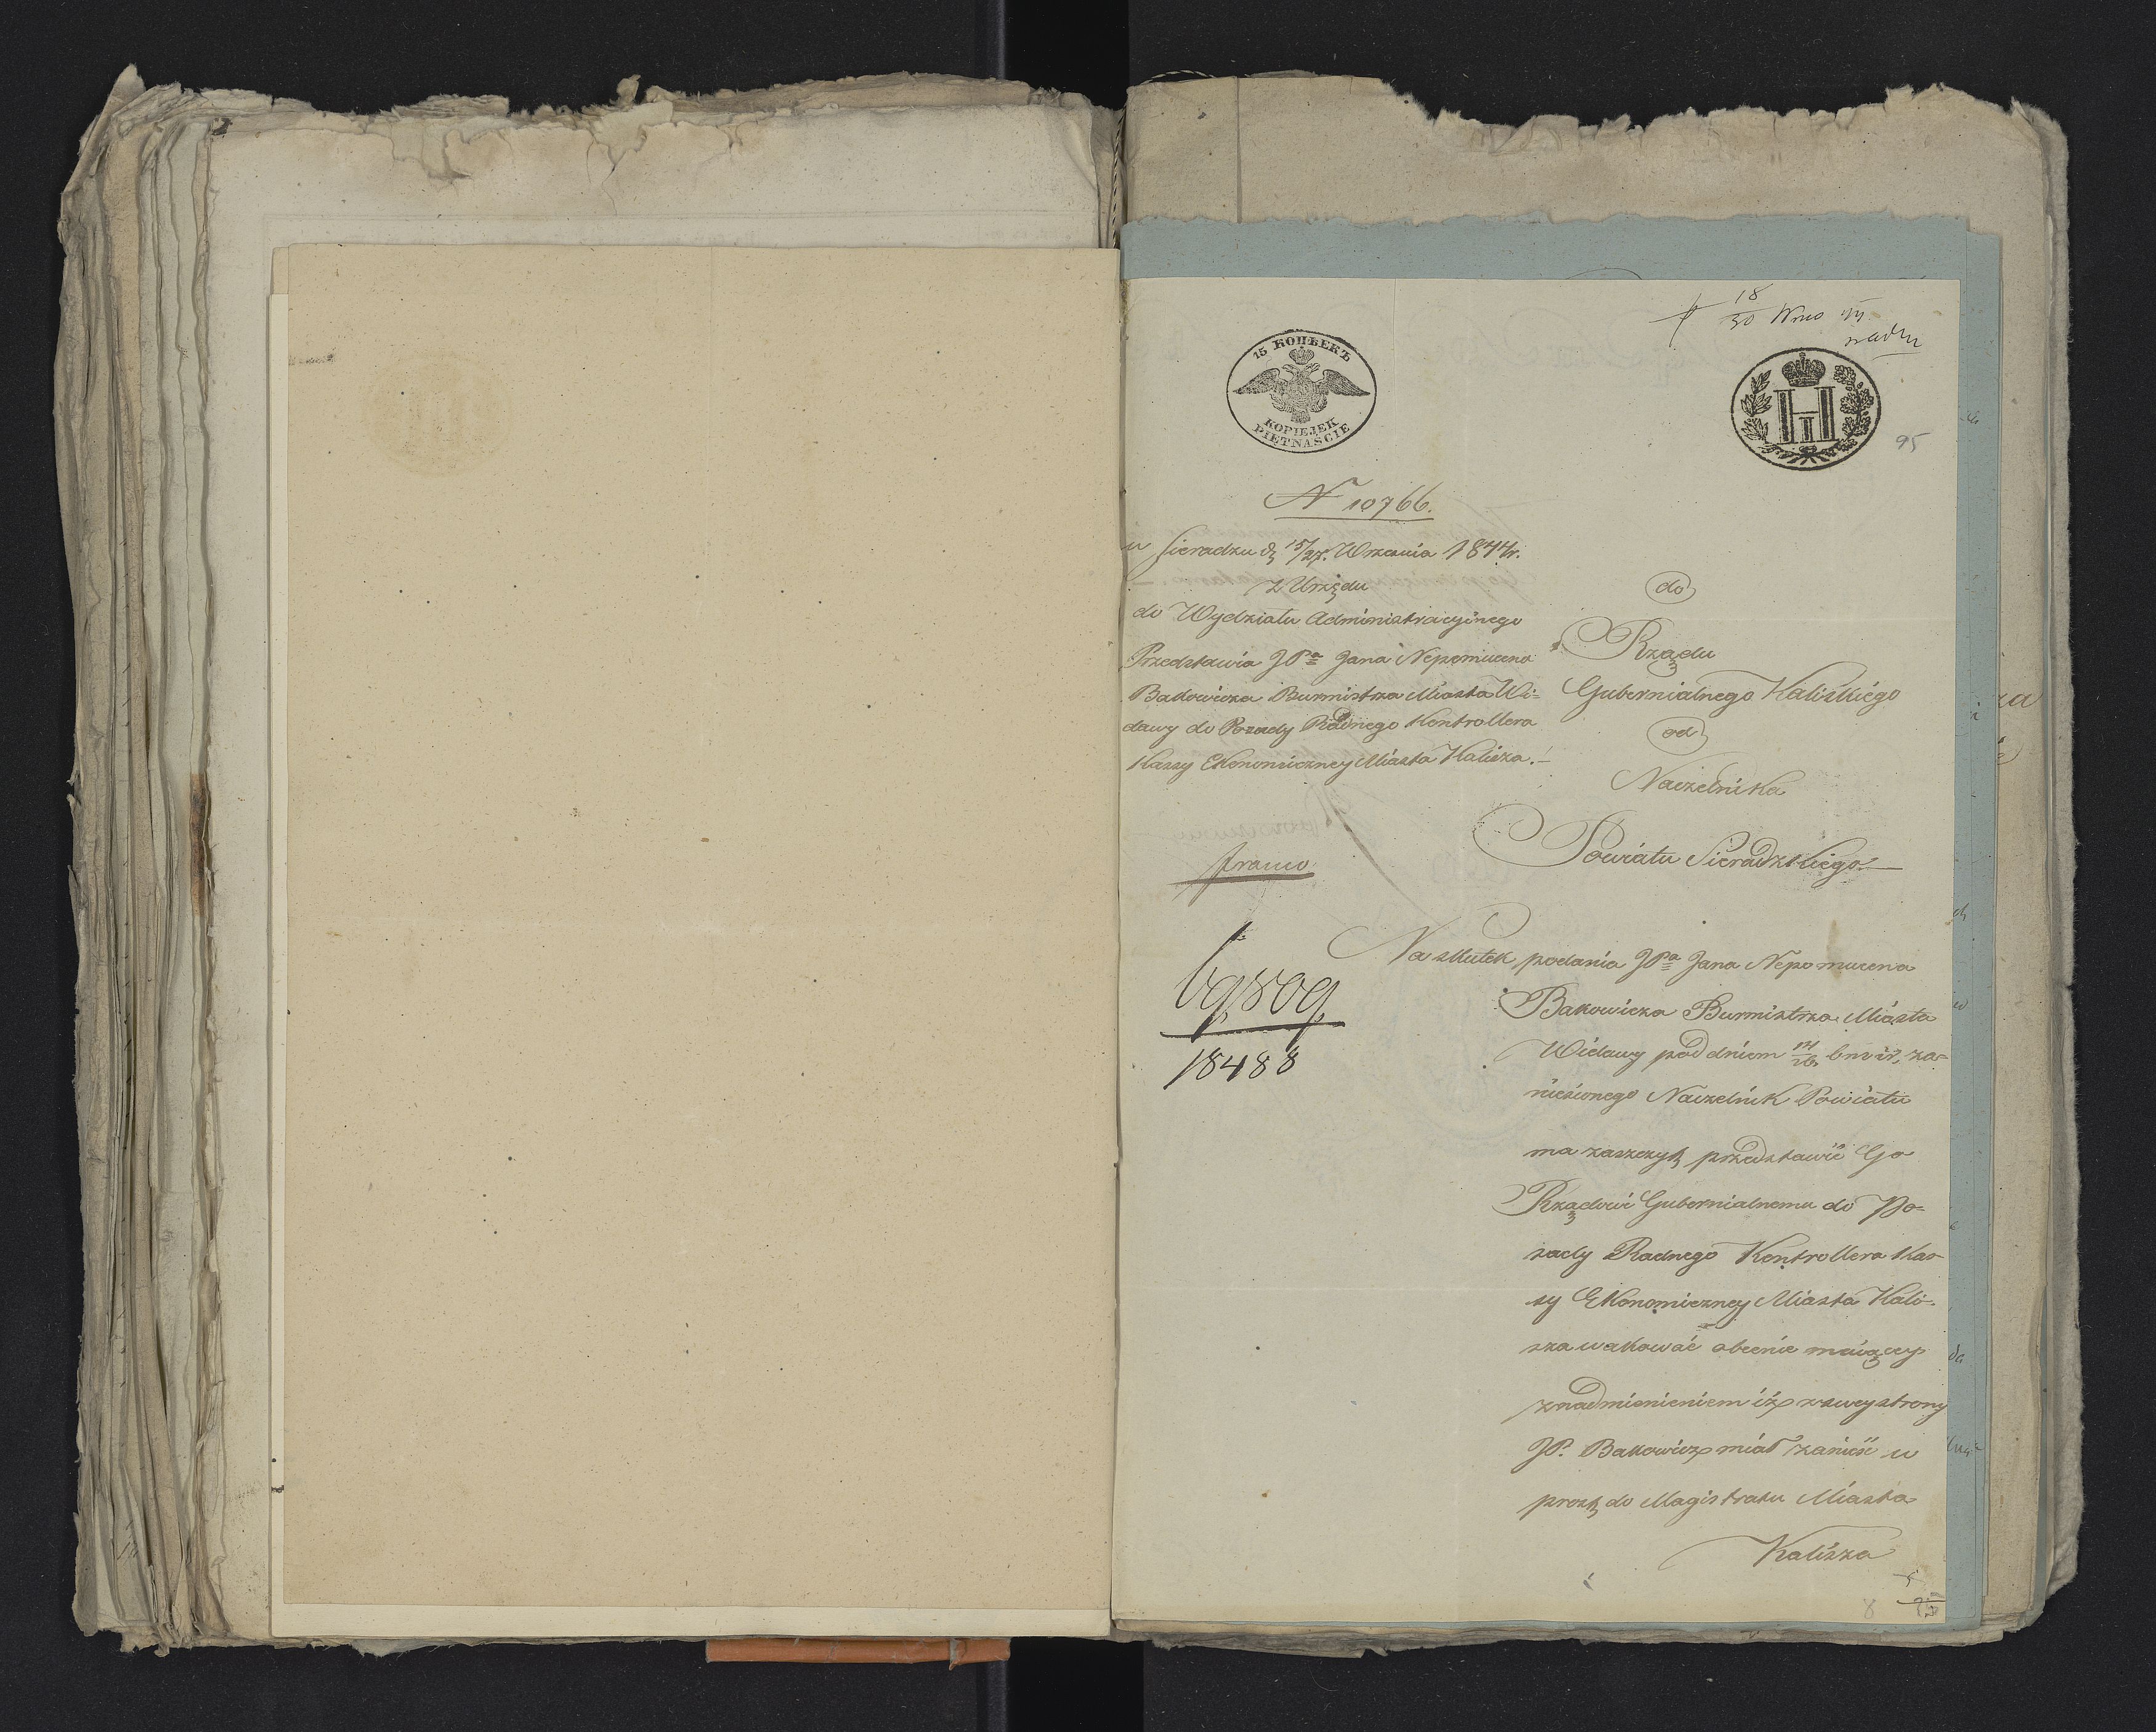 p 18/30 Wrześ
15 КОПѢЕКЪ
KOPIEJEK
PIĘTNAŚCIE
H I
95
N 10766.
w Sieradzu d. 15/27. Września 1844r.
z Urzędu
do Wydziału Administracyinego
Przedstawia JPa Jana Nepomucena
Bakowicza Burmistrza Miasta Wi=
dawy do Posady Radnego Kontrollera
Kassy Ekonomiczney Miasta Kalisza.–
franco
do
Rządu
Gubernialnego Kaliskiego
od
Naczelnika
Powiatu Sieradzkiego
69809
18488
Na skutek podania JPa Jana Nepomucena
Bakowicza Burmistrza Miasta
Widawy pod dniem 14/26 bm i r. za=
niesionego Naczelnik Powiatu
ma zaszczyt przedstawić Go
Rządowi Gubernialnemu do Po-
sady Radnego Kontrollera Kas-
sy Ekonomiczney Miasta Kali-
sza wakować obecnie maiącey
z nadmienieniem iż z swey strony
JP. Bakowicz miał zanieść w
prost do Magistratu Miasta
Kalisza